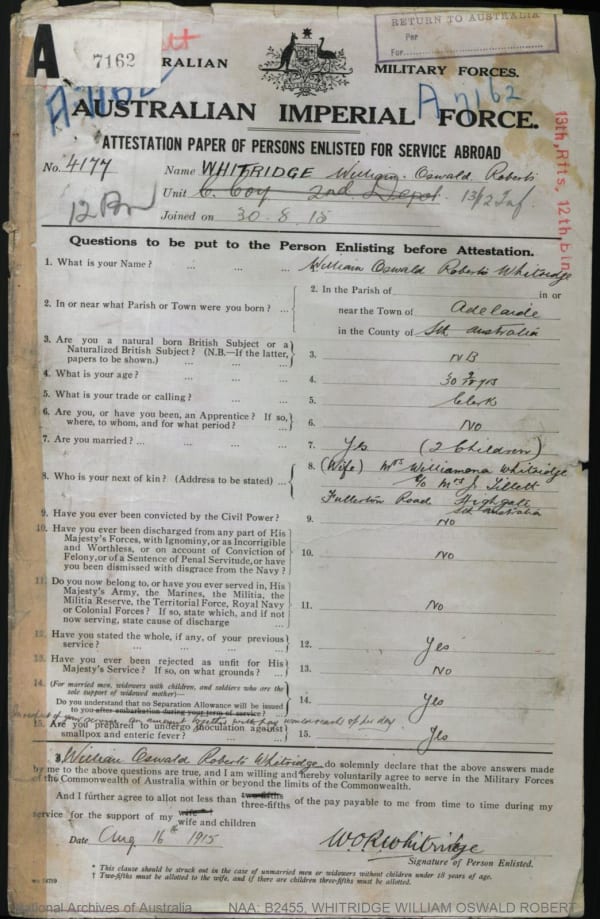 RETURN TO AUSTRALIA
Per
For
A
7162
RALIAN MILITARY FORCES.
A 7162
AUSTRALIAN IMPERIAL FORCE.
ATTESTATION PAPER OF PERSONS ENLISTED FOR SERVICE ABROAD
13th, Rfts, 12th, btn
No. 4177 Name WHITRIDGE William Oswald Roberts
Unit C. Coy 2nd Depot. 13/12 Inf
12 Bn
Joined on 30-8-15
Questions to be put to the Person Enlisting before Attestation.
1. What is your Name? ... ... ... William Oswald Roberts Whitridge
2. In or near what Parish or Town were you born? ...
2. In the Parish of in or
near the Town of Adelaide
in the County of Sth Australia
3. Are you a natural born British Subject or a
Naturalized British Subject? (N.B.—If the latter,
papers to be shown.) ... ...
3. NB
4. What is your age? ... ... ...
4.
5. What is your trade or calling? ... ...
5. Clerk
6. Are you, or have you been, an Apprentice? If so,
where, to whom, and for what period? ...
6. No
7. Are you married? ... ... ... ...
7. Yes (2 Children)
8. Who is your next of kin? (Address to be stated) ...
8. (Wife) Mrs Williamena Whitridge
c/o Mrs J. Tillett
Fullerton Road Highgate
Sth Australia
9. Have you ever been convicted by the Civil Power?
9. No
10. Have you ever been discharged from any part of His
Majesty's Forces, with Ignominy, or as Incorrigible
and Worthless, or on account of Conviction of
Felony, or of a Sentence of Penal Servitude, or have
you been dismissed with disgrace from the Navy?
10. No
11. Do you now belong to, or have you ever served in, His
Majesty's Army, the Marines, the Militia, the
Militia Reserve, the Territorial Force, Royal Navy
or Colonial Forces? If so, state which, and if not
now serving, state cause of discharge ...
11. No
12. Have you stated the whole, if any, of your previous
service? ... ... ... ...
12. Yes
13. Have you ever been rejected as unfit for His
Majesty's Service? If so, on what grounds? ...
13. No
14. (For married men, widowers with children, and soldiers who are the
sole support of widowed mother)—
Do you understand that no Separation Allowance will be issued
to you after embarkation during your term of service?
14. Yes
in respect of your service an amount together with pay
15. Are you prepared to undergo inoculation against
smallpox and enteric fever? ...
15. Yes
I, William Oswald Roberts Whitridge do solemnly declare that the above answers made
by me to the above questions are true, and I am willing and hereby voluntarily agree to serve in the Military Forces
of the Commonwealth of Australia within or beyond the limits of the Commonwealth.
And I further agree to allot not less than two-fifths three-fifths of the pay payable to me from time to time during my
service for the support of my wife wife and children
Date Aug 16th 1915
W O R Whitridge
Signature of Person Enlisted.
* This clause should be struck out in the case of unmarried men or widowers without children under 18 years of age.
† Two-fifths must be allotted to the wife, and if there are children three-fifths must be allotted.
National Archives of Australia NAA: B2455, WHITRIDGE WILLIAM OSWALD ROBERT